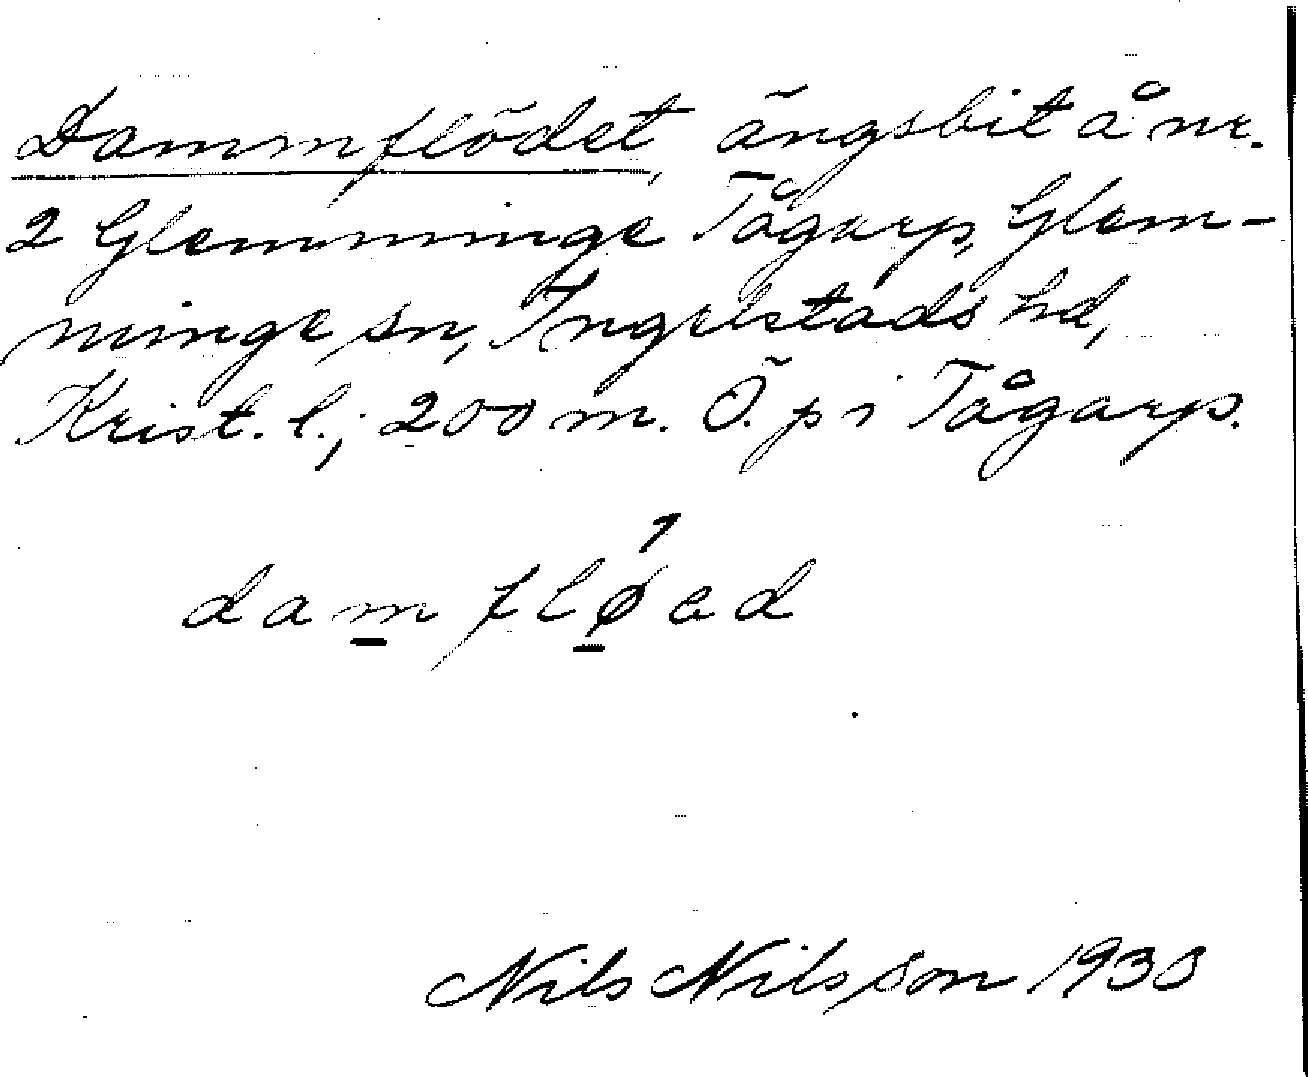 Dammflödet, ängsbit å nr.
2 Glemminge Tågarp, Glem-
minge sn, Ingelstads hd,
Krist. l.; 200 m. Ö. p i Tågarp.
damfløəd
Nils Nilsson 1933